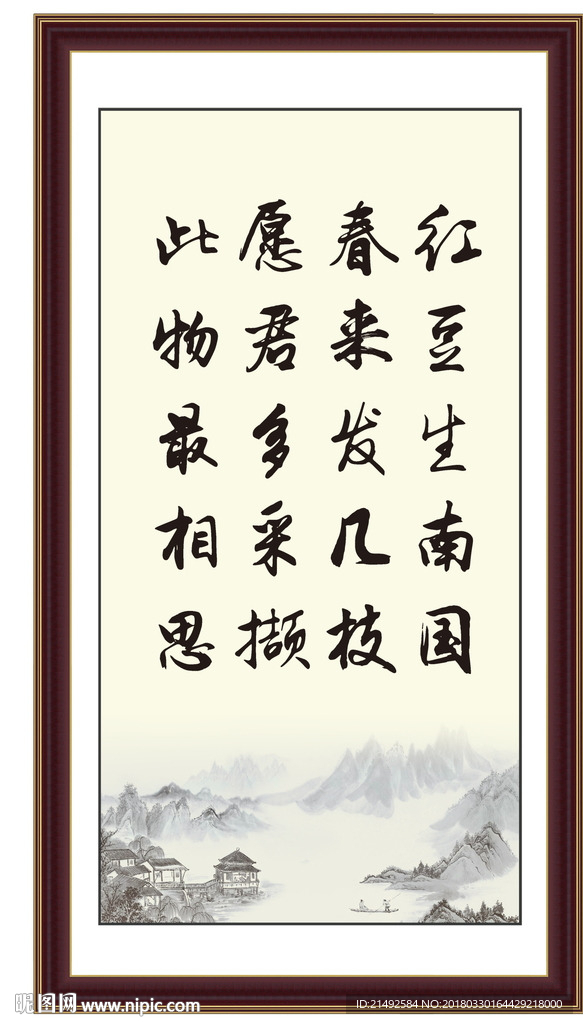 红豆生南国
春来发几枝
愿君多采撷
此物最相思
昵图网 www.nipic.com
ID:21492584 NO:20180330164429218000